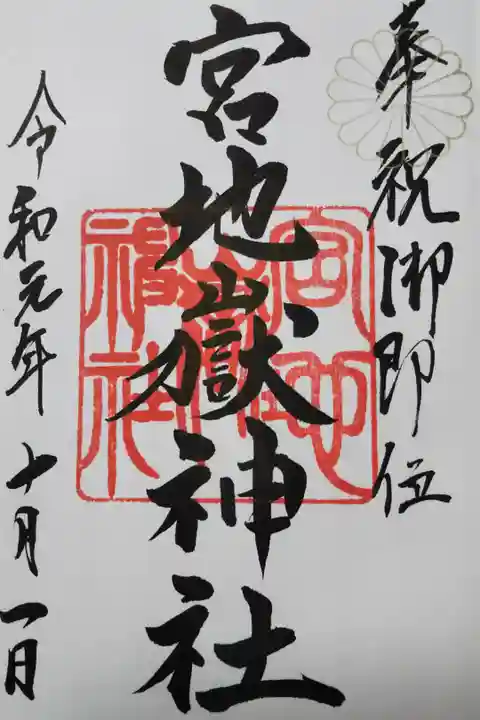 奉祝御即位
宮地嶽神社
宮地嶽神社
令和元年十月一日